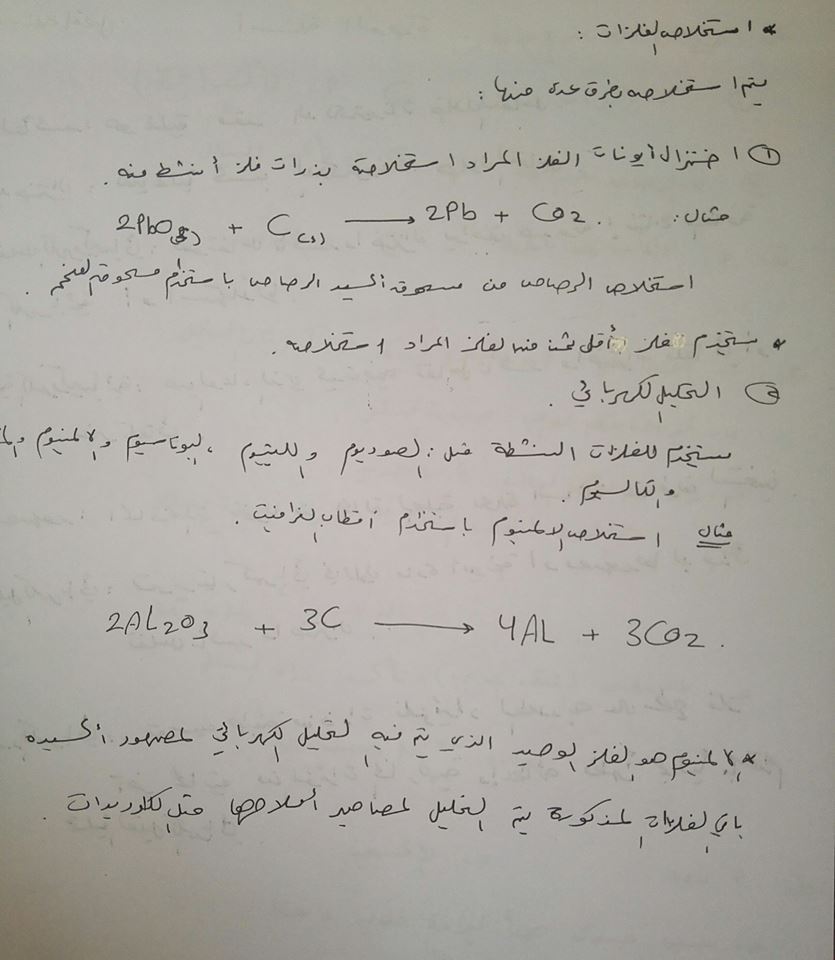 * استخلاص الفلزات :
يتم استخلاصه بطرق عدة منها :
① اختزال أيونات الفلز المراد استخلاصة بذرات فلز أنشط منه .
مثال: 2PbO + C(s) → 2Pb + CO2 .
استخلاص الرصاص من مسحوق أكسيد الرصاص باستخدام مسحوق الفحم .
* يستخدم فلز أقل ثمنا من الفلز المراد استخلاصه .
② التحليل الكهربائي .
يستخدم للفلزات النشطة مثل : الصوديوم والليثيوم ، البوتاسيوم والالمنيوم
والكالسيوم .
مثال استخلاص الالمنيوم باستخدام أقطاب الغرافيت .
2AL2O3 + 3C → 4AL + 3CO2 .
* الالمنيوم هو الفلز الوحيد الذي يتم فيه التحليل الكهربائي لمصهور أكسيده
باقي الفلزات المذكورة يتم التحليل لمصاهير أملاحها مثل الكلوريدات .